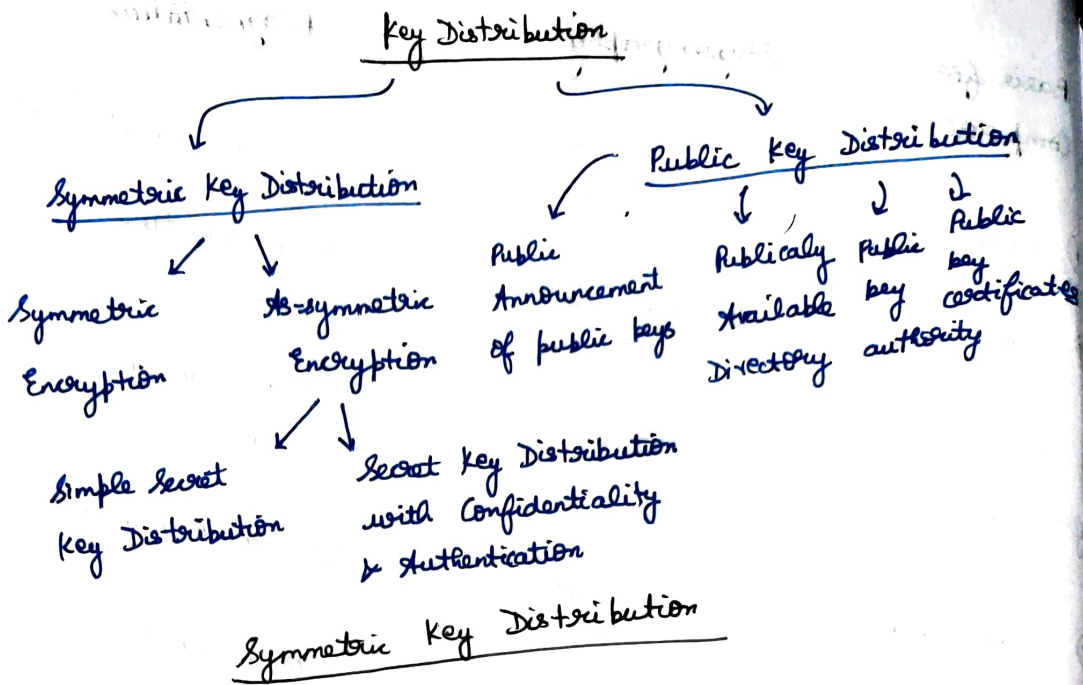 Key Distribution
Symmetric Key Distribution
Public Key Distribution
Symmetric
Encryption
As-symmetric
Encryption
Public
Announcement
of public keys
Publicaly
Available
Directory
Public
key
authority
Public
key
certificates
Simple Secret
Key Distribution
Secret Key Distribution
with Confidentiality
& Authentication
Symmetric Key Distribution